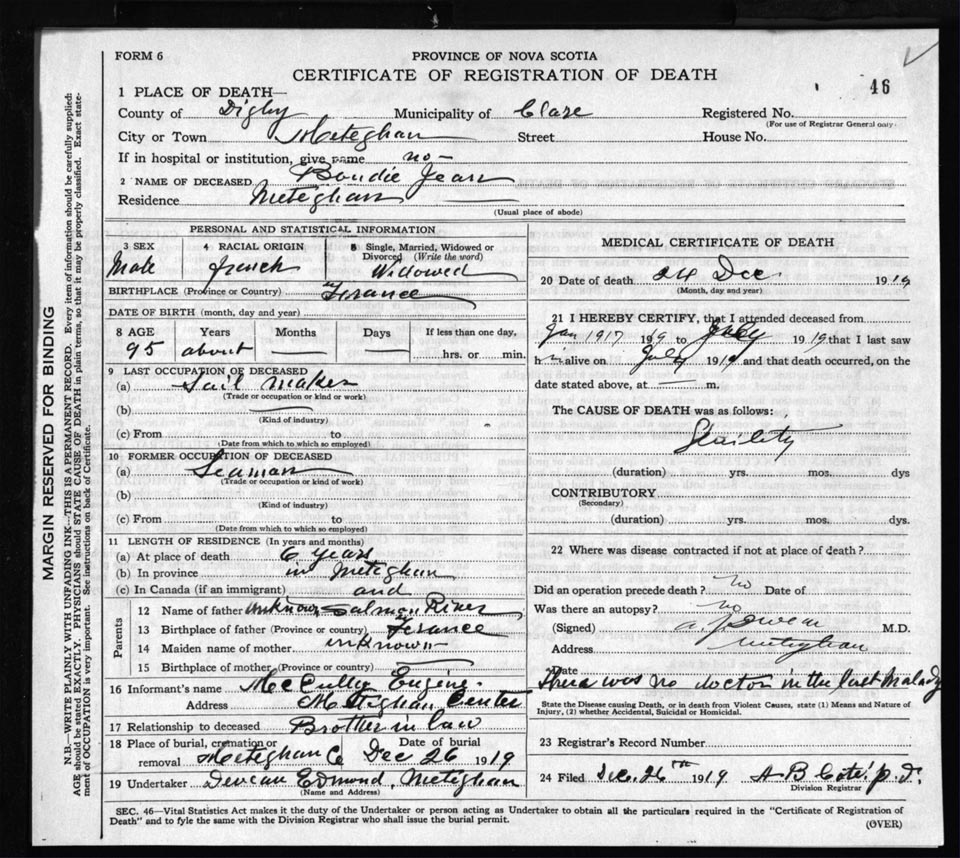 FORM 6
PROVINCE OF NOVA SCOTIA
CERTIFICATE OF REGISTRATION OF DEATH
46
1 PLACE OF DEATH—
County of Digby Municipality of Clare Registered No.
(For use of Registrar General only)
City or Town Meteghan Street House No.
If in hospital or institution, give name no—
2 NAME OF DECEASED Boudie Jean
Residence Meteghan
(Usual place of abode)
PERSONAL AND STATISTICAL INFORMATION
3 SEX 4 RACIAL ORIGIN 5 Single, Married, Widowed or Divorced (Write the word)
Male french Widowed
BIRTHPLACE (Province or Country) France
DATE OF BIRTH (month, day and year)
8 AGE Years Months Days If less than one day,
95 about — — hrs. or min.
9 LAST OCCUPATION OF DECEASED
(a) Sail maker
(Trade or occupation or kind or work)
(b)
(Kind of industry)
(c) From to
(Date from which to which so employed)
10 FORMER OCCUPATION OF DECEASED
(a) Seaman
(Trade or occupation or kind of work)
(b)
(Kind of industry)
(c) From to
(Date from which to which so employed)
11 LENGTH OF RESIDENCE (In years and months)
(a) At place of death 6 years
(b) In province in Meteghan
(c) In Canada (if an immigrant) and
Parents
12 Name of father unknown Salmon River
13 Birthplace of father (Province or country) France
14 Maiden name of mother unknown
15 Birthplace of mother (Province or country)
16 Informant's name Eugene
Address Meteghan Center
17 Relationship to deceased Brother in law
18 Place of burial, cremation or removal Meteghan C Date of burial Dec 26 1919
19 Undertaker Deveau Edmond, Meteghan
(Name and Address)
MEDICAL CERTIFICATE OF DEATH
20 Date of death 24 Dec 1919
(Month, day and year)
21 I HEREBY CERTIFY, that I attended deceased from
Jan 1917 19 to July 1919 that I last saw
h i alive on July 1919 and that death occurred, on the
date stated above, at — m.
The CAUSE OF DEATH was as follows:
(duration) yrs. mos. dys
CONTRIBUTORY
(Secondary)
(duration) yrs. mos. dys.
22 Where was disease contracted if not at place of death?
Did an operation precede death? no Date of
Was there an autopsy? no
(Signed) M.D.
Address Meteghan
Date
There was no doctor in the last malady
State the Disease causing Death, or in death from Violent Causes, state (1) Means and Nature of
Injury, (2) whether Accidental, Suicidal or Homicidal.
23 Registrar's Record Number
24 Filed Dec. 26th 1919 A B Cote' p.d.
Division Registrar
SEC. 46—Vital Statistics Act makes it the duty of the Undertaker or person acting as Undertaker to obtain all the particulars required in the "Certificate of Registration of
Death" and to fyle the same with the Division Registrar who shall issue the burial permit.
(OVER)
MARGIN RESERVED FOR BINDING
N.B.—WRITE PLAINLY WITH UNFADING INK—THIS IS A PERMANENT RECORD. Every item of information should be carefully supplied:
AGE should be stated EXACTLY. PHYSICIANS should STATE CAUSE OF DEATH in plain terms, so that it may be properly classified. Exact state-
ment of OCCUPATION is very important. See instructions on back of Certificate.